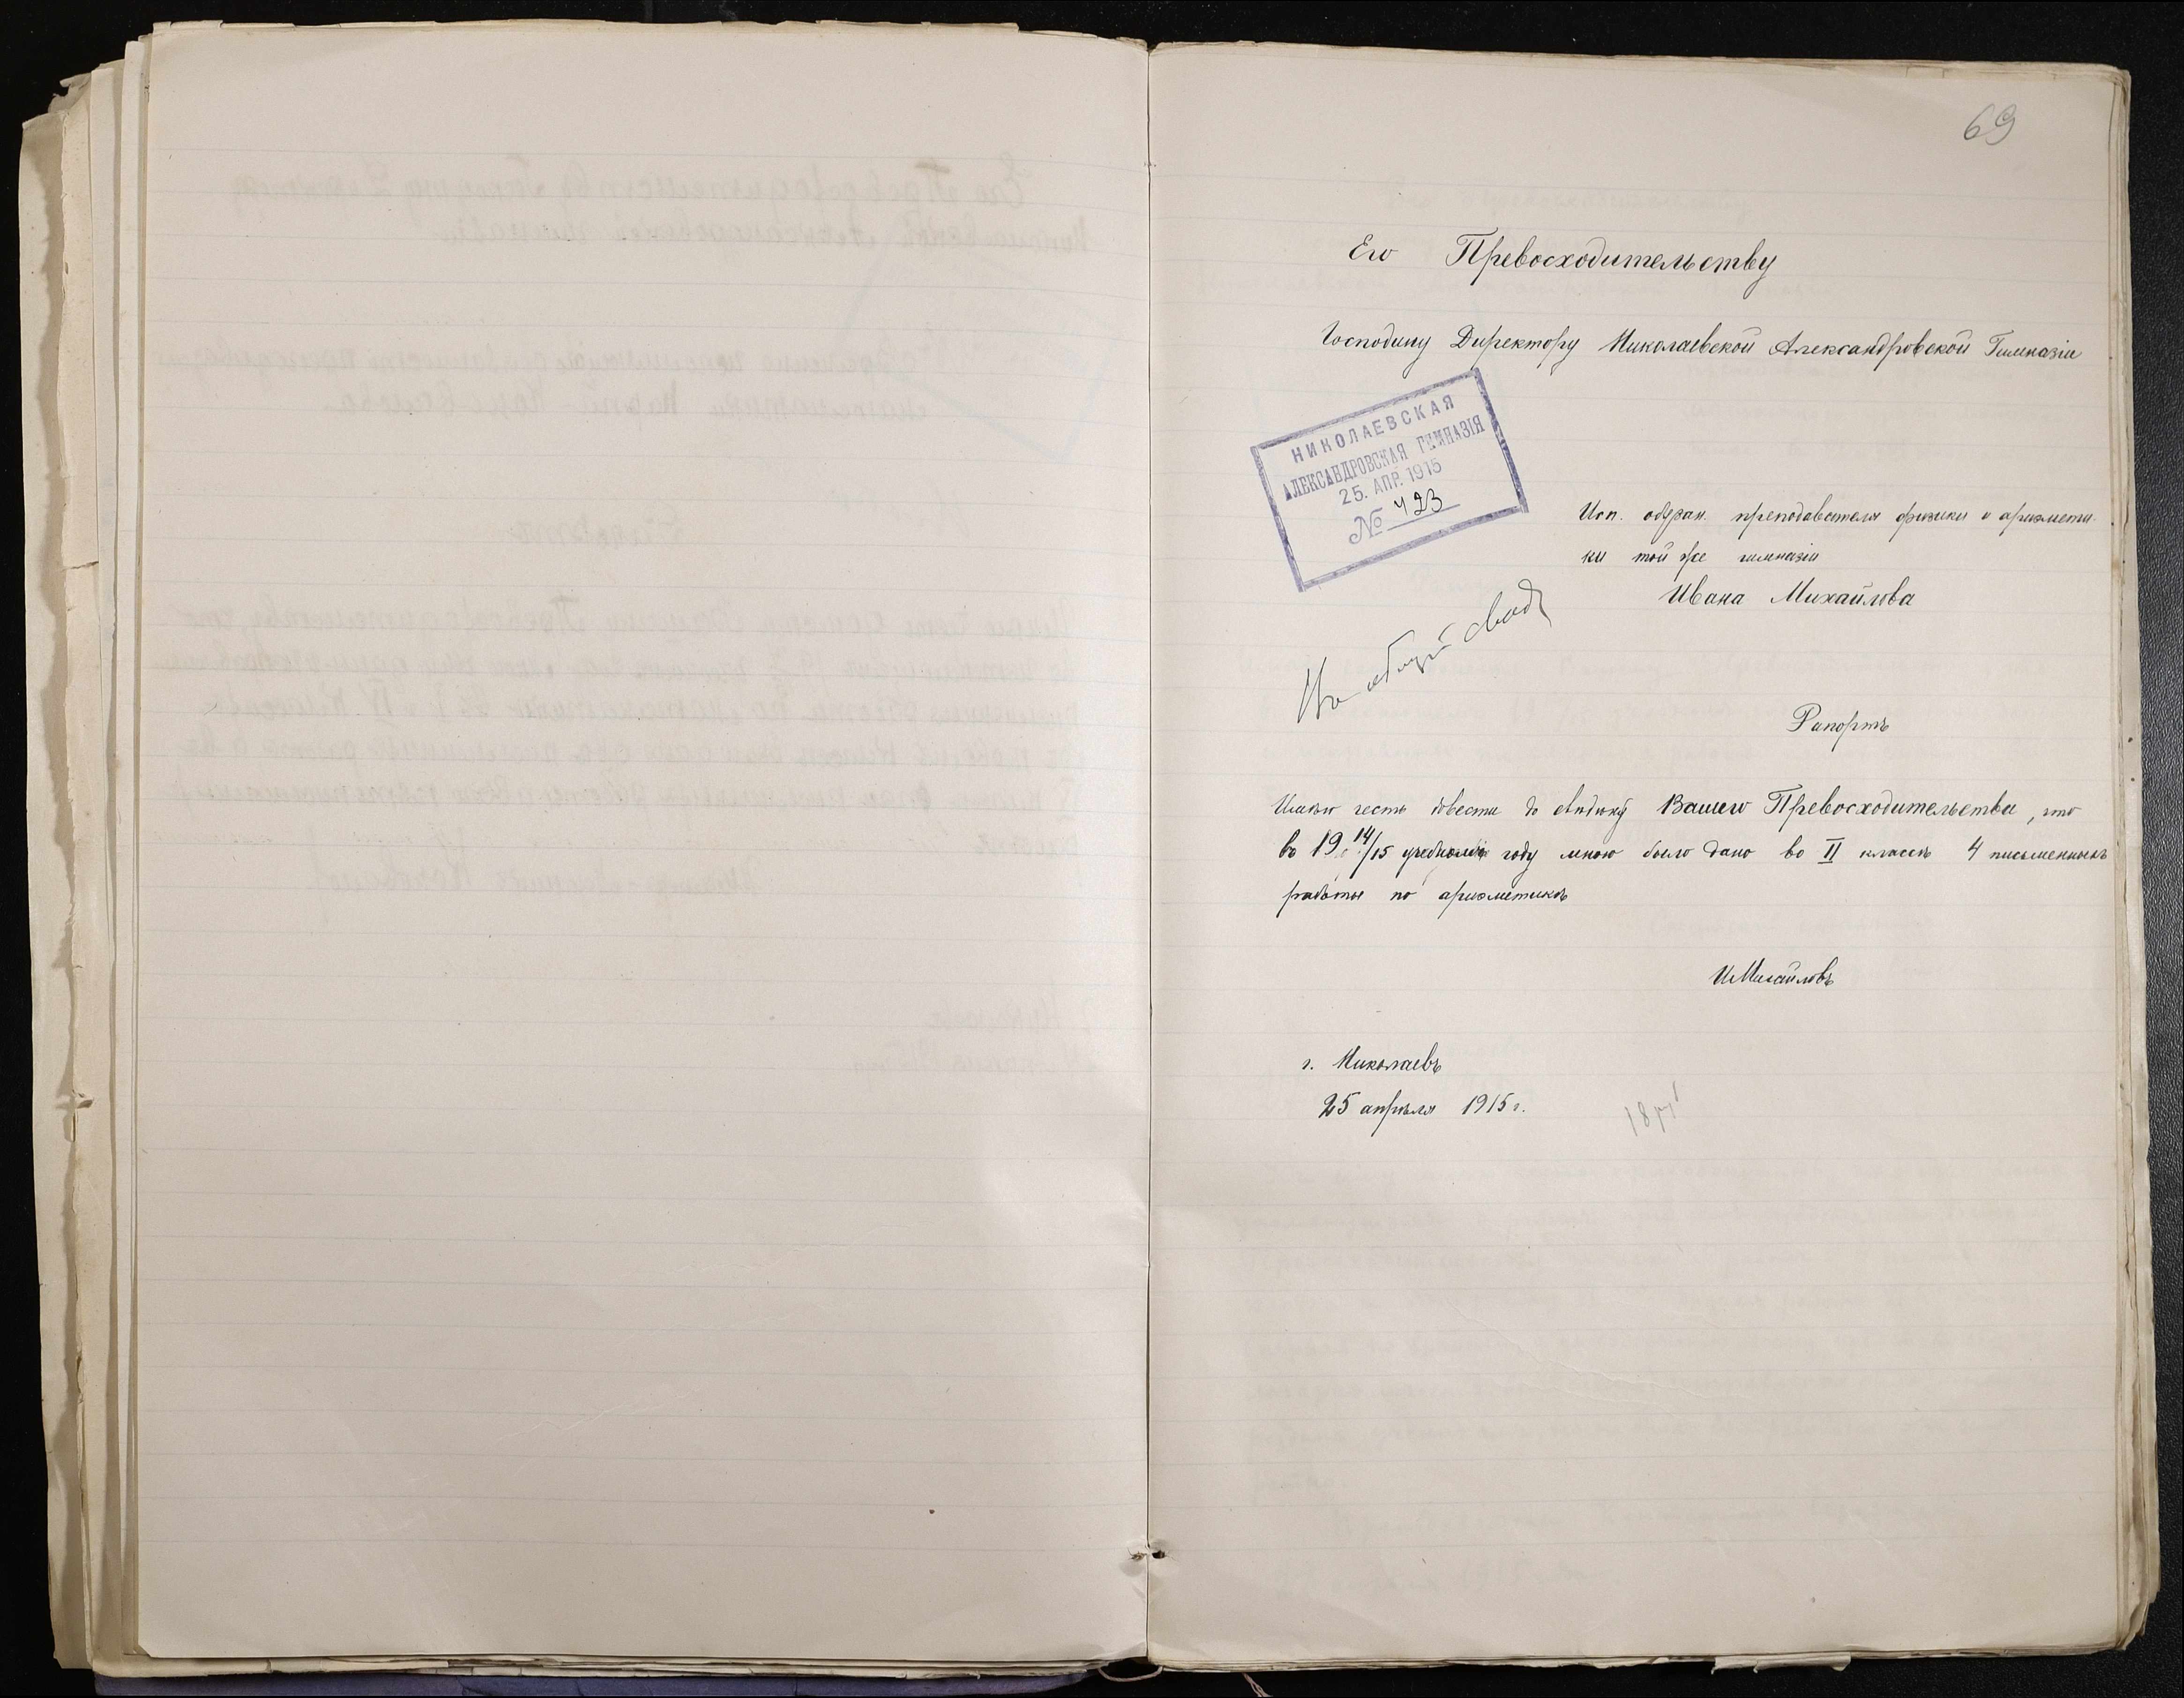 69
Его Превосходительству
Господину Директору Николаевской Александровской Гимназіи
НИКОЛАЕВСКАЯ
АЛЕКСАНДРОВСКАЯ ГИМНАЗІЯ
25. АПР. 1915
№ 423
Исп. обязан. преподавателя физики и арифмети-
ки той же гимназіи
Ивана Михайлова
На общій сводъ
Рапортъ
Имѣю честь довести до свѣдѣнія Вашего Превосходительства, что
въ 19 14/15 учебномъ году мною было дано во II классѣ 4 письменныхъ
работы по ариѳметикѣ
ИМихайловъ
г. Николаевъ
25 апрѣля 1915 г.